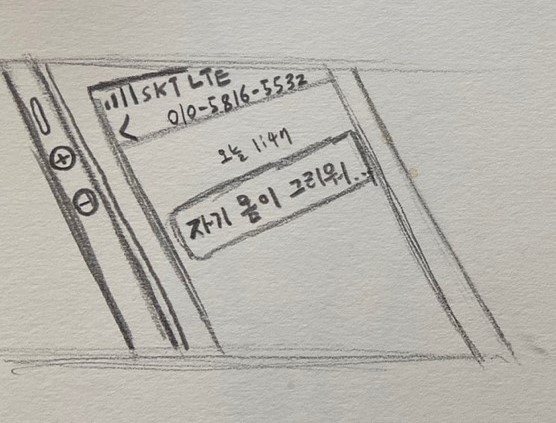 SKT LTE
010-5816-5532
오늘 1:47
자기 몸이 그리워...